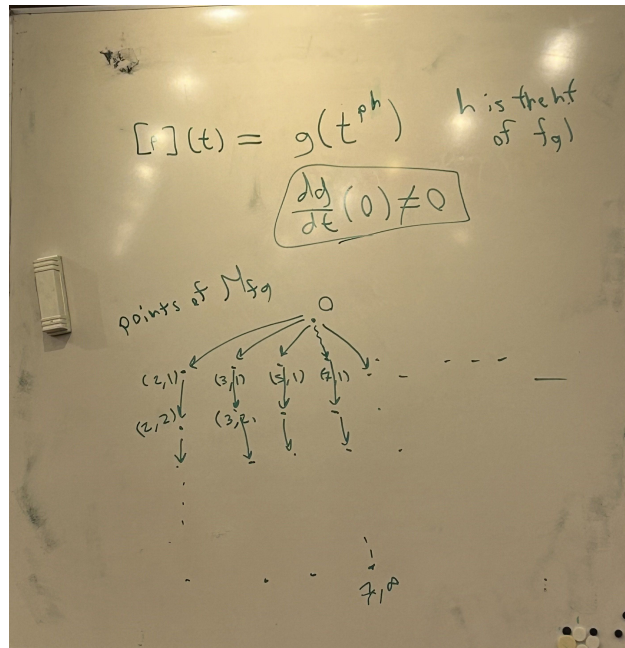 [p](t) = g(t^{p^h}) h is the ht
of fgl
dg/dt (0) ≠ 0
points of M_{fg}
0
(2,1) (3,1) (5,1) (7,1)
(2,2) (3,2,
7,∞